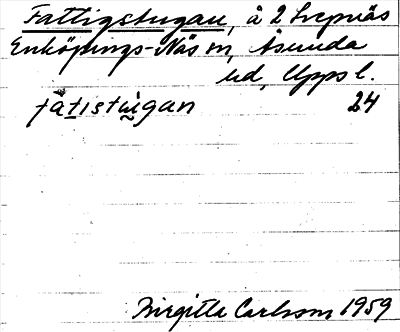 Fattigstugan, å 2 Svepnäs
Enköpings-Näs sn, Åsunda
hd, Upps l.
fàtistùgan 24
Birgitta Carlsson 1959